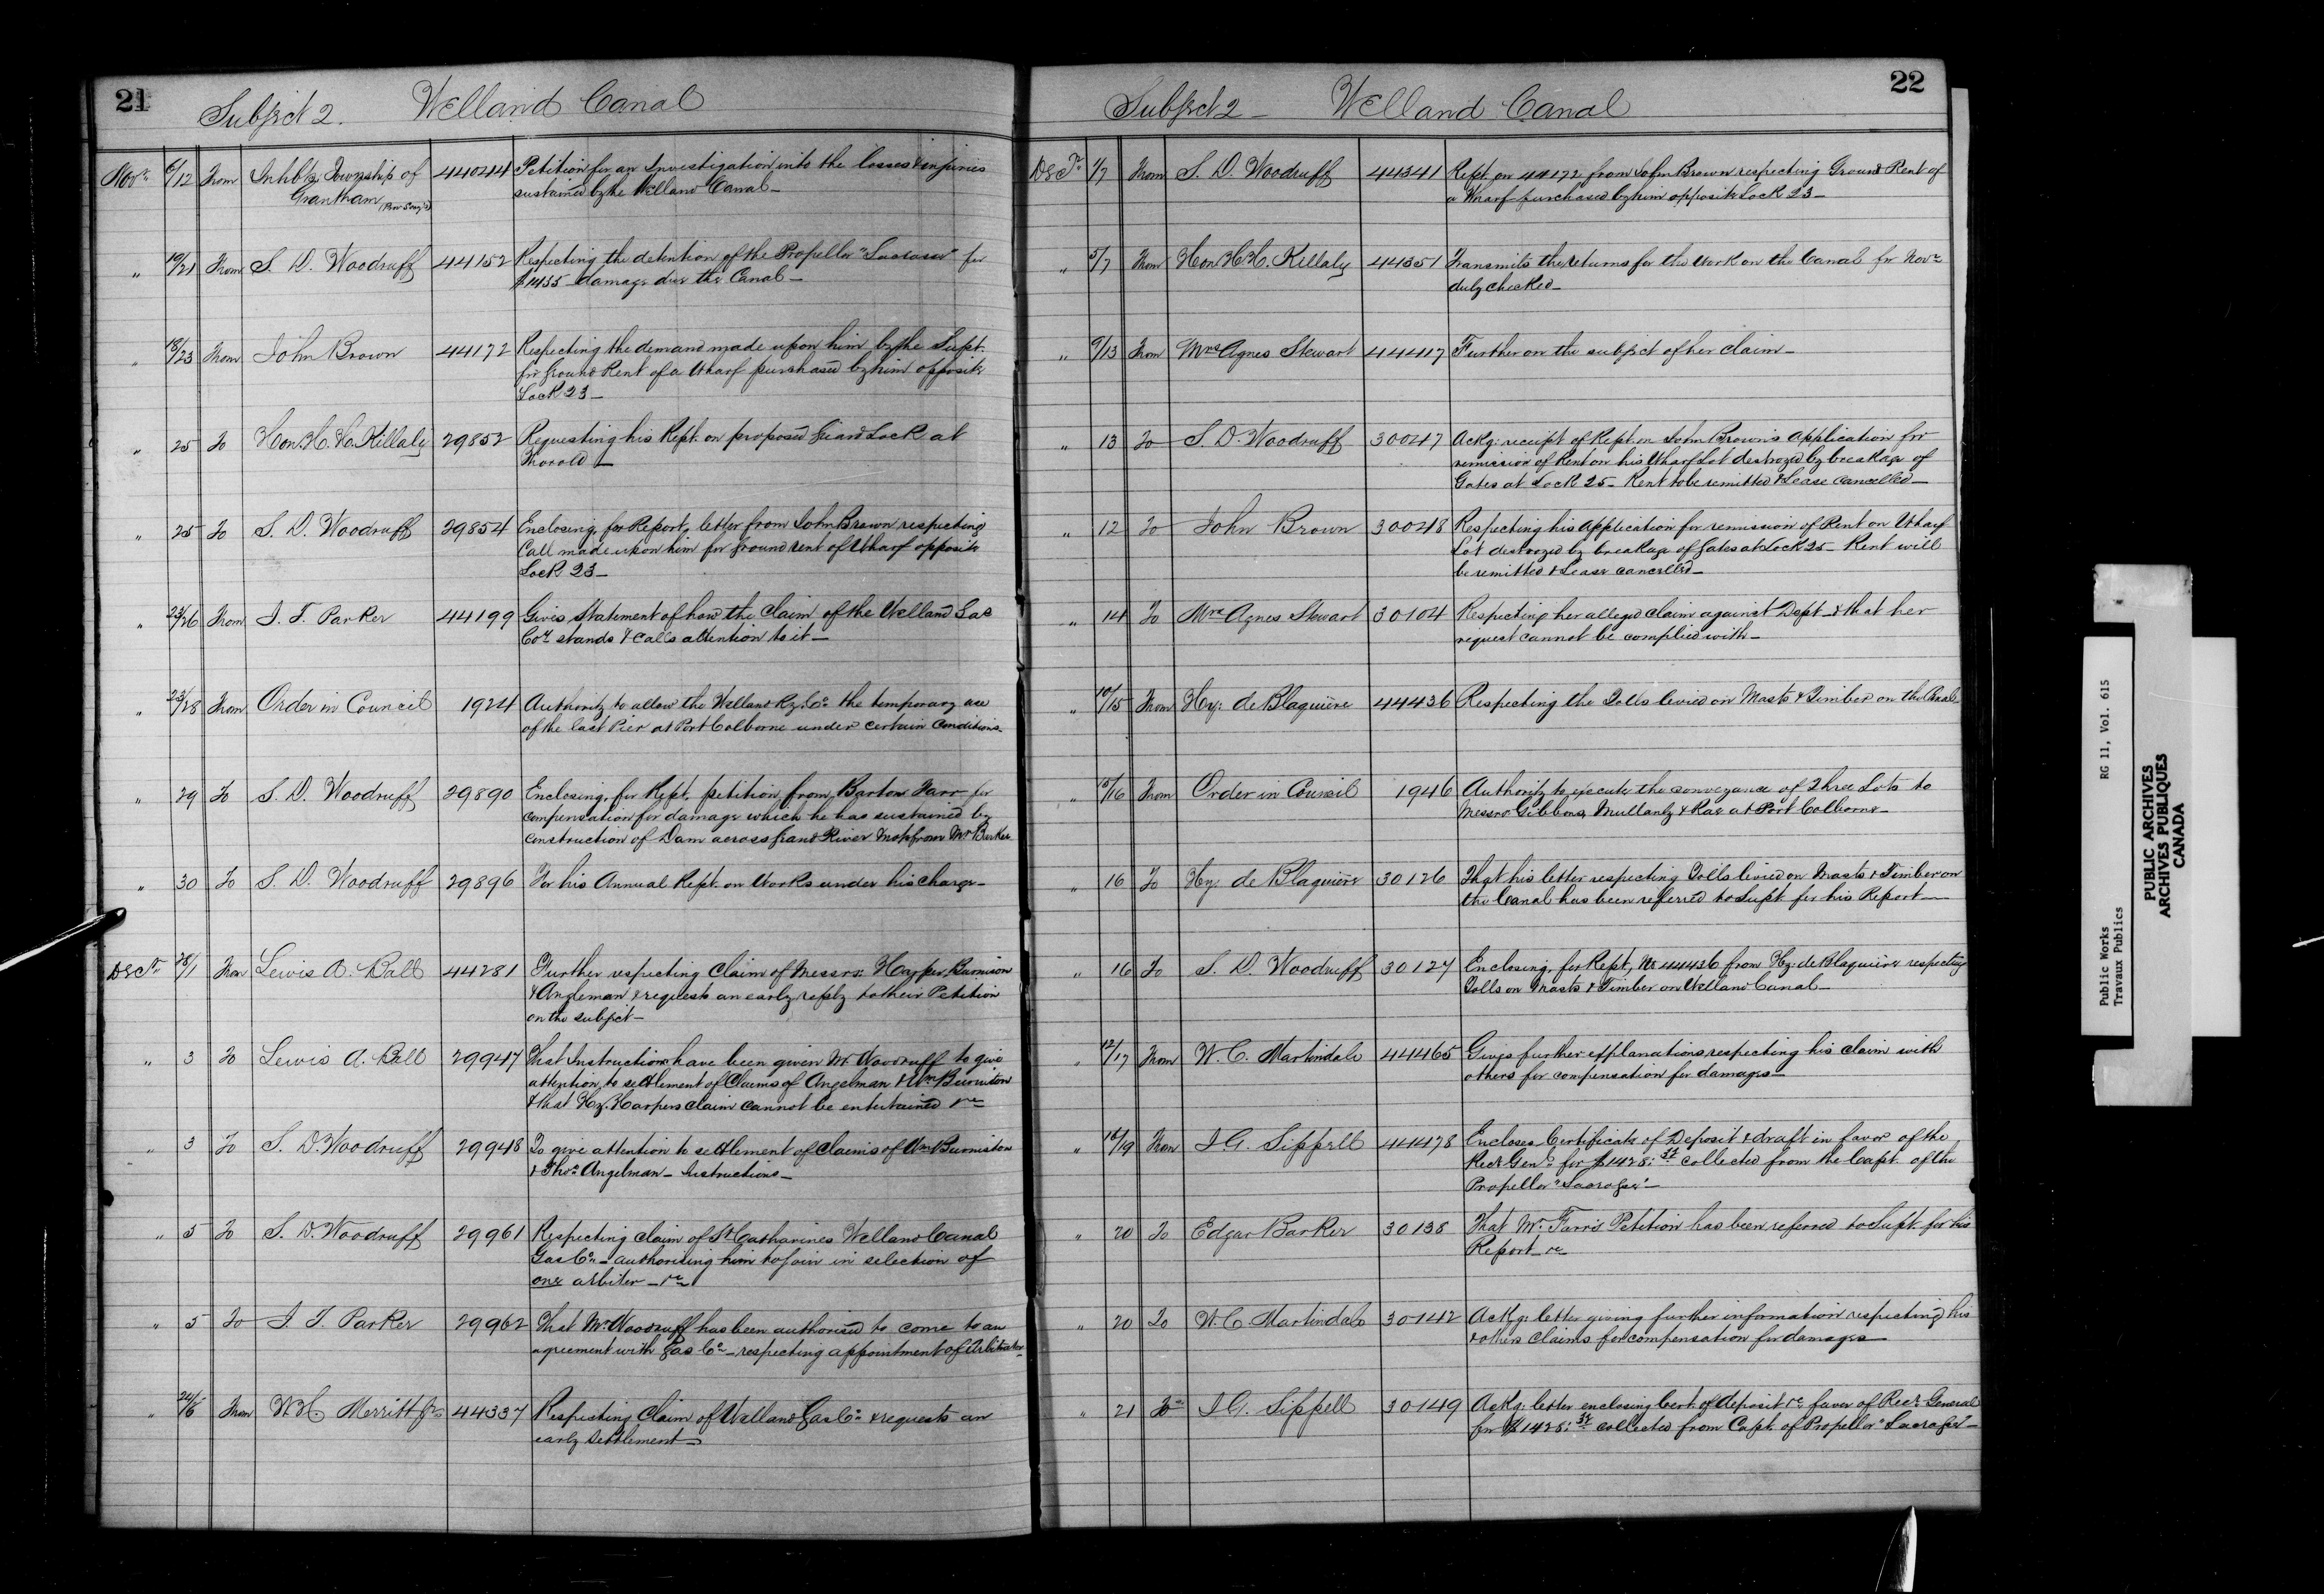 21
Subject 2. Welland Canal
Novr. 6/12 From Inhbts Township of 44044 Petition for an Investigation into the losses & injuries
Grantham sustained by the Welland Canal_
" 19/21 From S. D. Woodruff 44152 Respecting the detention of the Propeller for
$1435 damage due the Canal_
" 18/23 From John Brown 44172 Respecting the demand made upon him by the Supt.
for Ground Rent of a Wharf purchased by him opposite
Lock 23_
" 25 To Hon. H. H. Killaly 29852 Requesting his Rept. on proposed Guard Lock at
Thorold_
" 25 To S. D. Woodruff 29854 Enclosing, for Report, letter from John Brown respecting
Call made upon him for ground rent of Wharf opposite
Lock 23_
" 23/26 From J. T. Parker 44199 Gives Statement of how the claim of the Welland Gas
Coy stands & calls attention to it_
" 23/28 From Order in Council 1924 Authority to allow the Welland Ry. Co. the temporary use
of the East Pier at Port Colborne under certain conditions_
" 29 To S. D. Woodruff 29890 Enclosing, for Rept. petition from Barton Farr for
compensation for damage which he has sustained by
construction of Dam across Grand River from Mr Barker
" 30 To S. D. Woodruff 29896 For his Annual Rept. on Works under his charge_
Decr. 28/1 From Lewis A. Ball 44281 Further respecting Claim of Messrs. Harper, Burnison
& Angleman & requests an early reply to their Petition
on the subject_
" 3 To Lewis A. Ball 29947 That Instructions have been given Mr Woodruff to give
attention to settlement of Claims of Angelman & Wm Burniston
& that Hy. Harpers claim cannot be entertained &c
" 3 To S. D. Woodruff 29948 To give attention to settlement of Claims of Wm Burniston
& Thos Angelman_ Instructions_
" 5 To S. D. Woodruff 29961 Respecting claim of St Catharines Welland Canal
Gas Co._ authorising him to join in selection of
one arbiter_&c
" 5 To J. T. Parker 29962 That Mr Woodruff has been authorised to come to an
agreement with Gas Co_ respecting appointment of Arbitrator_
" 24/6 From W. H. Merritt Jr 44337 Respecting Claim of Welland Gas Co. & requests an
early settlement_
22
Subject 2_ Welland Canal
Decr. 1/7 From S. D. Woodruff 44341 Rept. on 44172 from John Brown respecting Ground Rent of
a Wharf purchased by him opposite Lock 23_
" 5/7 From Hon H. H. Killaly 44351 Transmits the returns for the Work on the Canal for Novr
duly checked_
" 9/13 From Mrs Agnes Stewart 44417 Further on the subject of her claim_
" 13 To S. D. Woodruff 30047 Ackg. receipt of Rept. on John Brown's Application for
remission of Rent on his Wharf Lot destroyed by breakage of
Gates at Lock 25_ Rent to be remitted & Lease cancelled_
" 12 To John Brown 30048 Respecting his Application for remission of Rent on Wharf
Lot destroyed by breakage of Gates at Lock 25_ Rent will
be remitted & Lease cancelled_
" 14 To Mrs Agnes Stewart 30104 Respecting her alleged claim against Dept_ & that her
request cannot be complied with_
" 10/15 From Hy. de Blaquière 44436 Respecting the Tolls levied on Masts & Timber on the Canal_
" 15/16 From Order in Council 1946 Authority to execute the conveyance of Three Lots to
Messrs Gibbons, Mullanly & Rae at Port Colborne_
" 16 To Hy. de Blaquière 30126 That his letter respecting Tolls levied on Masts & Timber on
the Canal has been referred to Supt. for his Report_
" 16 To S. D. Woodruff 30127 Enclosing, for Rept, No 44436 from Hy. de Blaquière respecting
Tolls on Masts & Timber on Welland Canal_
" 12/17 From W. C. Martindale 44465 Gives further explanations respecting his claim with
others for compensation for damages_
" 16/19 From J. G. Sippell 44478 Encloses Certificate of Deposit & draft in favor of the
Recr Genl. for $1428. collected from the Capt. of the
Propeller
" 20 To Edgar Barker 30138 That Mr. Farr's Petition has been referred to Supt. for his
Report_&c
" 20 To W. C. Martindale 30142 Ackg. letter giving further information respecting his
& others claims for compensation for damages_
" 21 To J. G. Sippell 30149 Ackg. letter enclosing Cert. of deposit &c favor of Recr General
for $1428. collected from Capt. of Propeller
Public Works RG 11, Vol. 615
Travaux Publics
PUBLIC ARCHIVES
ARCHIVES PUBLIQUES
CANADA